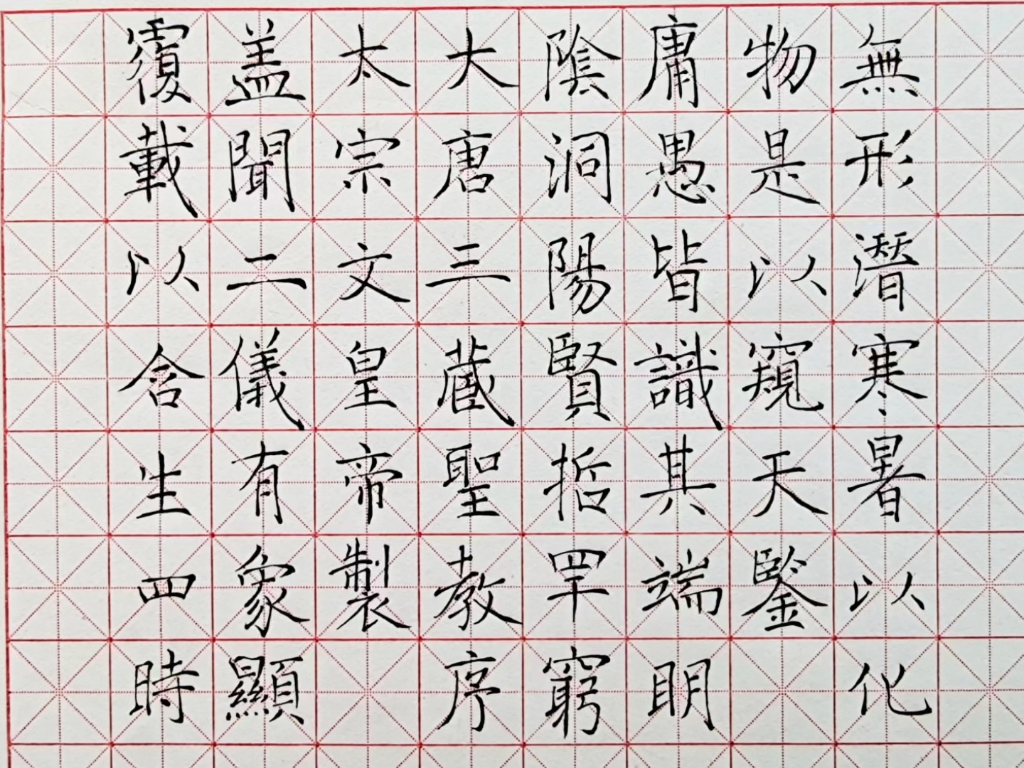 大唐三蔵聖教序
太宗文皇帝製
盖聞二儀有象顯
覆載以含生四時
無形潜寒暑以化
物是以窺天鑒
庸愚皆識其端明
陰洞陽賢哲罕窮